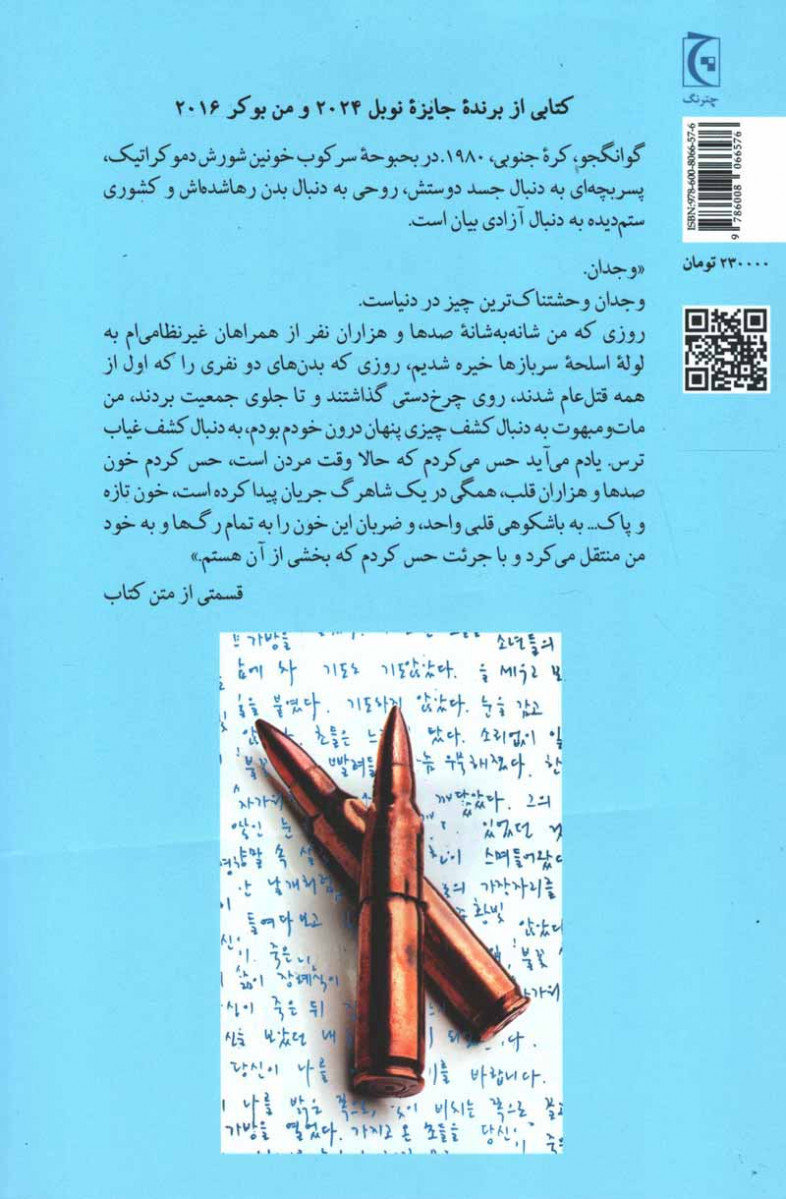 چترنگ
کتابی از برندهٔ جایزهٔ نوبل ۲۰۲۴ و من بوکر ۲۰۱۶
گوانگجو، کرهٔ جنوبی، ۱۹۸۰. در بحبوحهٔ سرکوب خونین شورش دموکراتیک،
پسربچه‌ای به دنبال جسد دوستش، روحی به دنبال بدن رهاشده‌اش و کشوری
ستم‌دیده به دنبال آزادی بیان است.
«وجدان.
وجدان وحشتناک‌ترین چیز در دنیاست.
روزی که من شانه‌به‌شانهٔ صدها و هزاران نفر از همراهان غیرنظامی‌ام به
لولهٔ اسلحهٔ سربازها خیره شدیم، روزی که بدن‌های دو نفری را که اول از
همه قتل‌عام شدند، روی چرخ‌دستی گذاشتند و تا جلوی جمعیت بردند، من
مات‌ومبهوت به دنبال کشف چیزی پنهان درون خودم بودم، به دنبال کشف غیاب
ترس. یادم می‌آید حس می‌کردم که حالا وقت مردن است، حس کردم خون
صدها و هزاران قلب، همگی در یک شاهرگ جریان پیدا کرده است، خون تازه
و پاک... به باشکوهی قلبی واحد، و ضربان این خون را به تمام رگ‌ها و به خود
من منتقل می‌کرد و با جرئت حس کردم که بخشی از آن هستم.»
قسمتی از متن کتاب
ISBN:978-600-8066-57-6
9 786008 066576
۲۳۰۰۰۰ تومان
가방을 소년들의
에 차 기도 기도 않았다. 을 세우고
을 붙였다. 기도하지 않았다. 눈을 감고
초들은 탔다. 소리없이
빨려들 우묵해졌다.
깨달았다. 그의
눈 있었던
속 스며들어왔
가장자리를
들여다보고 않았다
불꽃
장례식이
죽은 뒤
보았던 내
당신이 나를 를 바랍니다.
나를 밝은 쪽으로, 꽃이 비치는 쪽으로
가방을 열었다. 가지고 온 초들을 당신